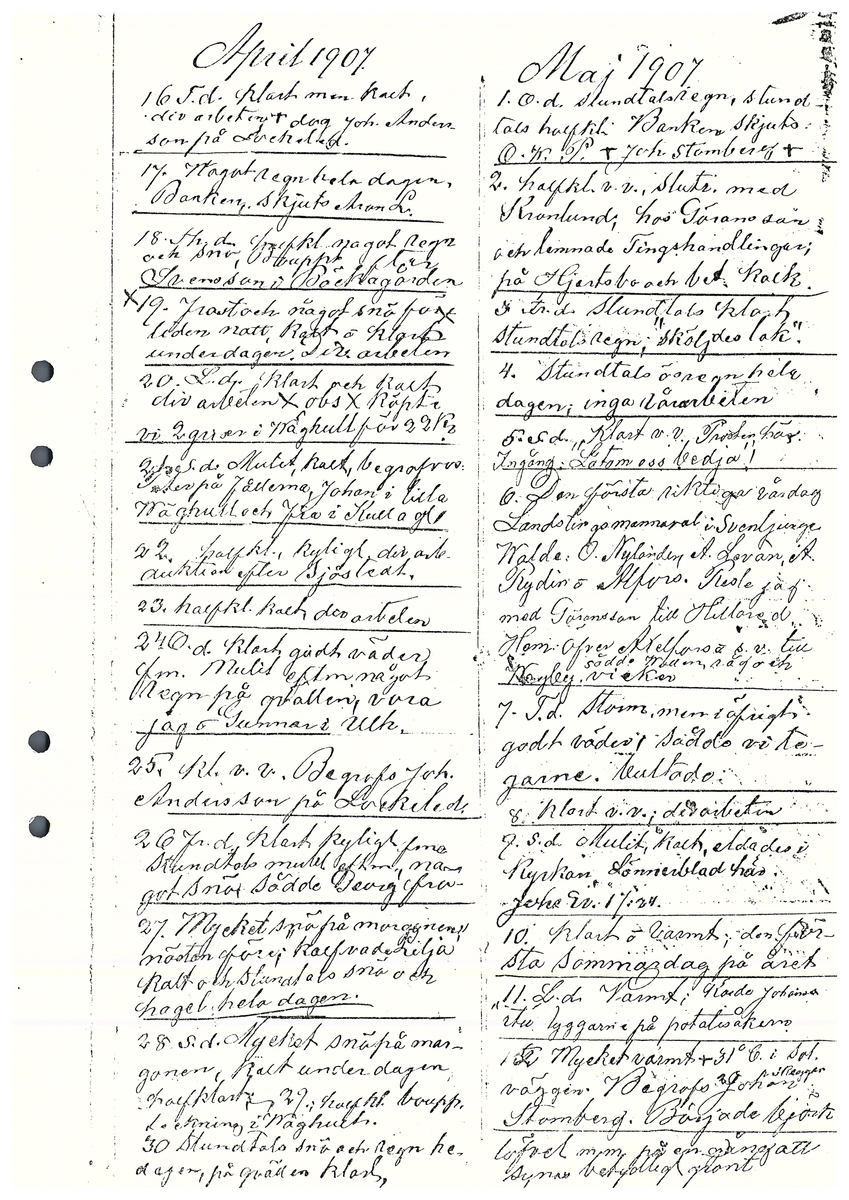 April 1907
16 T.d. Klart men kalt,
div arbeten + dog Joh. Anders-
son på Lockeled.
17. Något regn hela dagen,
Banken, skjuts
18. Th.d. halfkl något regn
och snö, Bouppt. efter
Svensson i Böckagården
X19. Frost och något snö före-
leden natt, kalt o klart
under dagen. Div. arbeten
20. L.d. klart och kalt
div arbeten X obs X köpte
vi 2 grisar i Wäghult för 22 Kr
21. S.d. Mulit, kalt, begrofvos
på Fällorna, Johan i lilla
Wäghult och Fra i Kulla
22. halfkl., kyligt, div arb.
auktion efter Sjöstedt.
23. halfkl. kalt div arbeten
24 O.d. klart godt väder
fm. Mulit eftm något
regn på qvällen, vora
jag o Gunnar i Ulh.
25. Kl. v. v. Begrofs Joh.
Andersson på Lockeled.
26 Fr.d. klart kyligt fm.
Stundtals mulit eftm, nå-
got snö. Sådde Georg frö-
27. Mycket snö på morgonen,
nästan före; kalfvade Lilja
kalt och stundtals snö och
hagel hela dagen.
28 S.d. Mycket snö på mor-
gonen, kalt under dagen,
halfklart; 29; halfkl. boupp-
teckning i Wäghult.
30 Stundtals snö och regn he-
dagen, på qvällen klart,
Maj 1907
1. O.d. stundtals regn, stund-
tals halfkl. Banken, skjuts.
O. K. P. + Joh Stomberg +
2. halfkl. v.v., slutr. med
Kronlund, hos Göransson
och lemnade Tingshandlingar;
på Hjertsbo och bet. kalk.
3 Fr.d. Stundtals klart
stundtals regn; "sköljdes lak".
4. Stundtals ösregn hela
dagen; inga vårarbeten
5. S.d., Klart v. v., Prosten här.
Ingång: Låtom oss bedja!
6. Den första riktiga vårdag
Landstingsmannaval i Svenljunga
Walde: O. Nylander, A. Levan, A.
Rydin o Alfors. Reste jag
med Göransson till Hillared
Hem öfver Axelfors s.v. till
sådde råg och
vicker
7. T.d. Storm, men i öfrigt
godt väder, sådde vi te-
garne. Vultade.
8. Klart v. v.; div arbeten
9. S.d Mulit, kalt, eldades i
Kyrkan, Lönnerblad här.
Johs Ev. 17:24.
10. Klart o Varmt; den för-
sta sommardag på året
11. L.d. Varmt; Körde Johannes
itu tyggarne på potatisåkern
12 Mycket varmt + 31° C. i sol.
väggen. Begrofs Johan
Stomberg. Började björk
löfvet mm. på en gång att
synas betydligt grönt